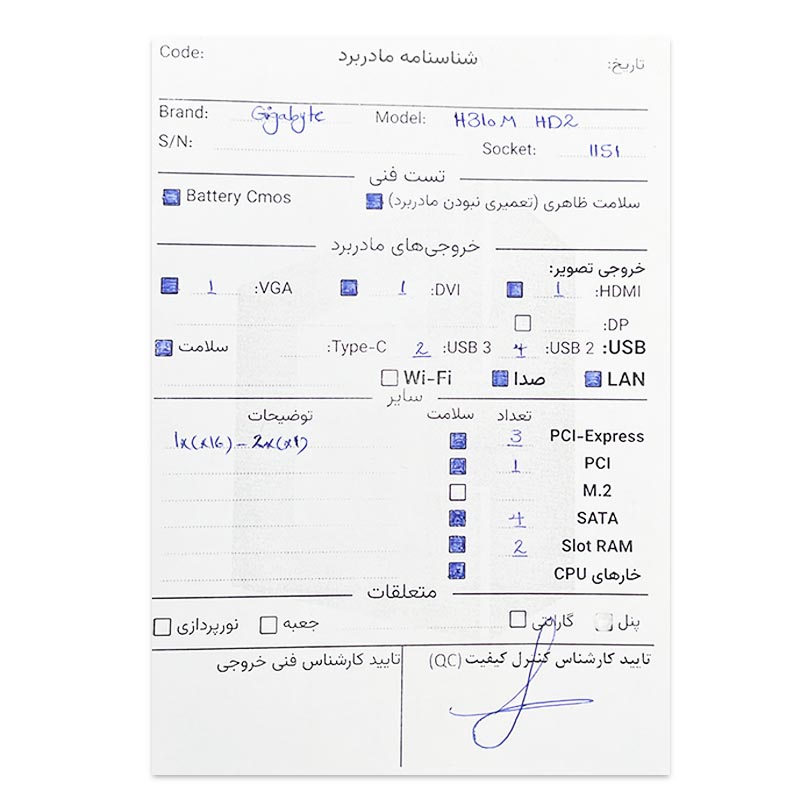 Code: شناسنامه مادربرد تاریخ:
Brand: Gigabyte Model: H310M HD2
S/N: Socket: 1151
تست فنی
سلامت ظاهری (تعمیری نبودن مادربرد) Battery Cmos
خروجی‌های مادربرد
خروجی تصویر:
HDMI: 1 DVI: 1 VGA: 1
DP:
USB: USB 2: 4 USB 3: 2 Type-C: سلامت
LAN صدا Wi-Fi
سایر
تعداد سلامت توضیحات
PCI-Express 3 1x(x16) - 2x(x1)
PCI 1
M.2
SATA 4
Slot RAM 2
خارهای CPU
متعلقات
پنل گارانتی جعبه نورپردازی
تایید کارشناس کنترل کیفیت (QC) تایید کارشناس فنی خروجی